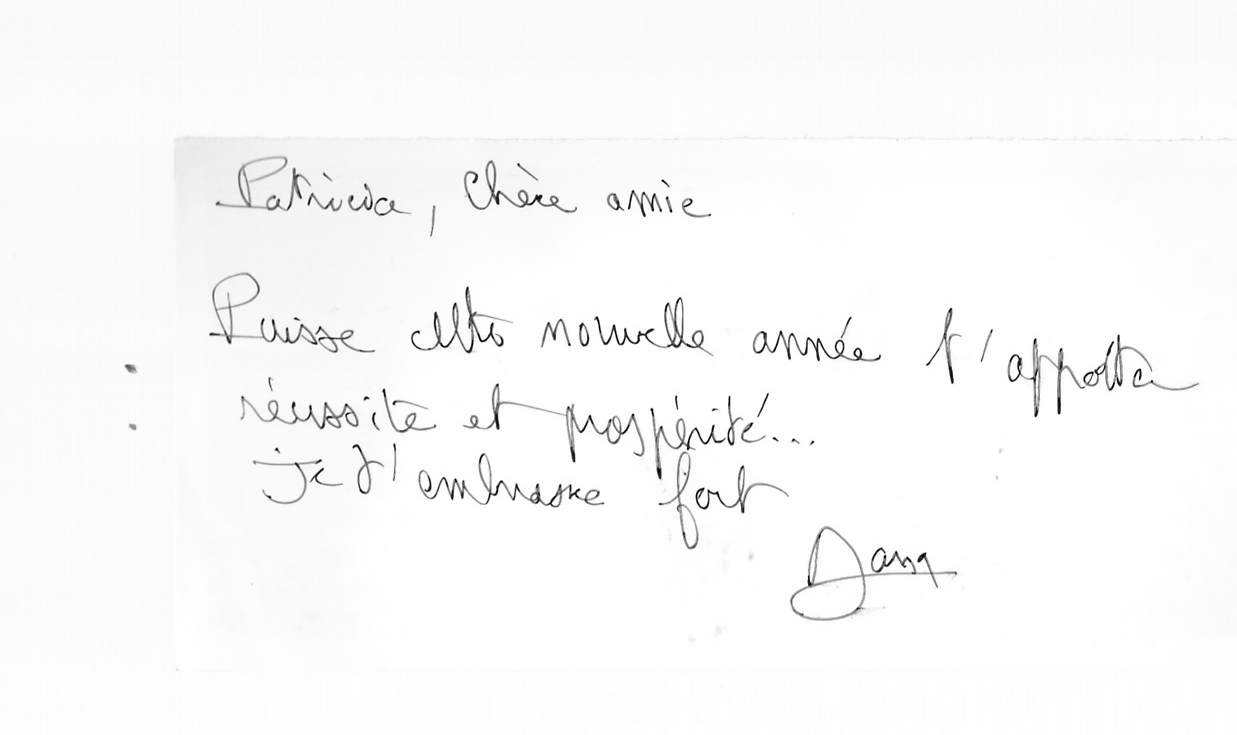 Patricia, Chère amie
Puisse cette nouvelle année t'apporter
réussite et prospérité...
je t'embrasse fort
Dana